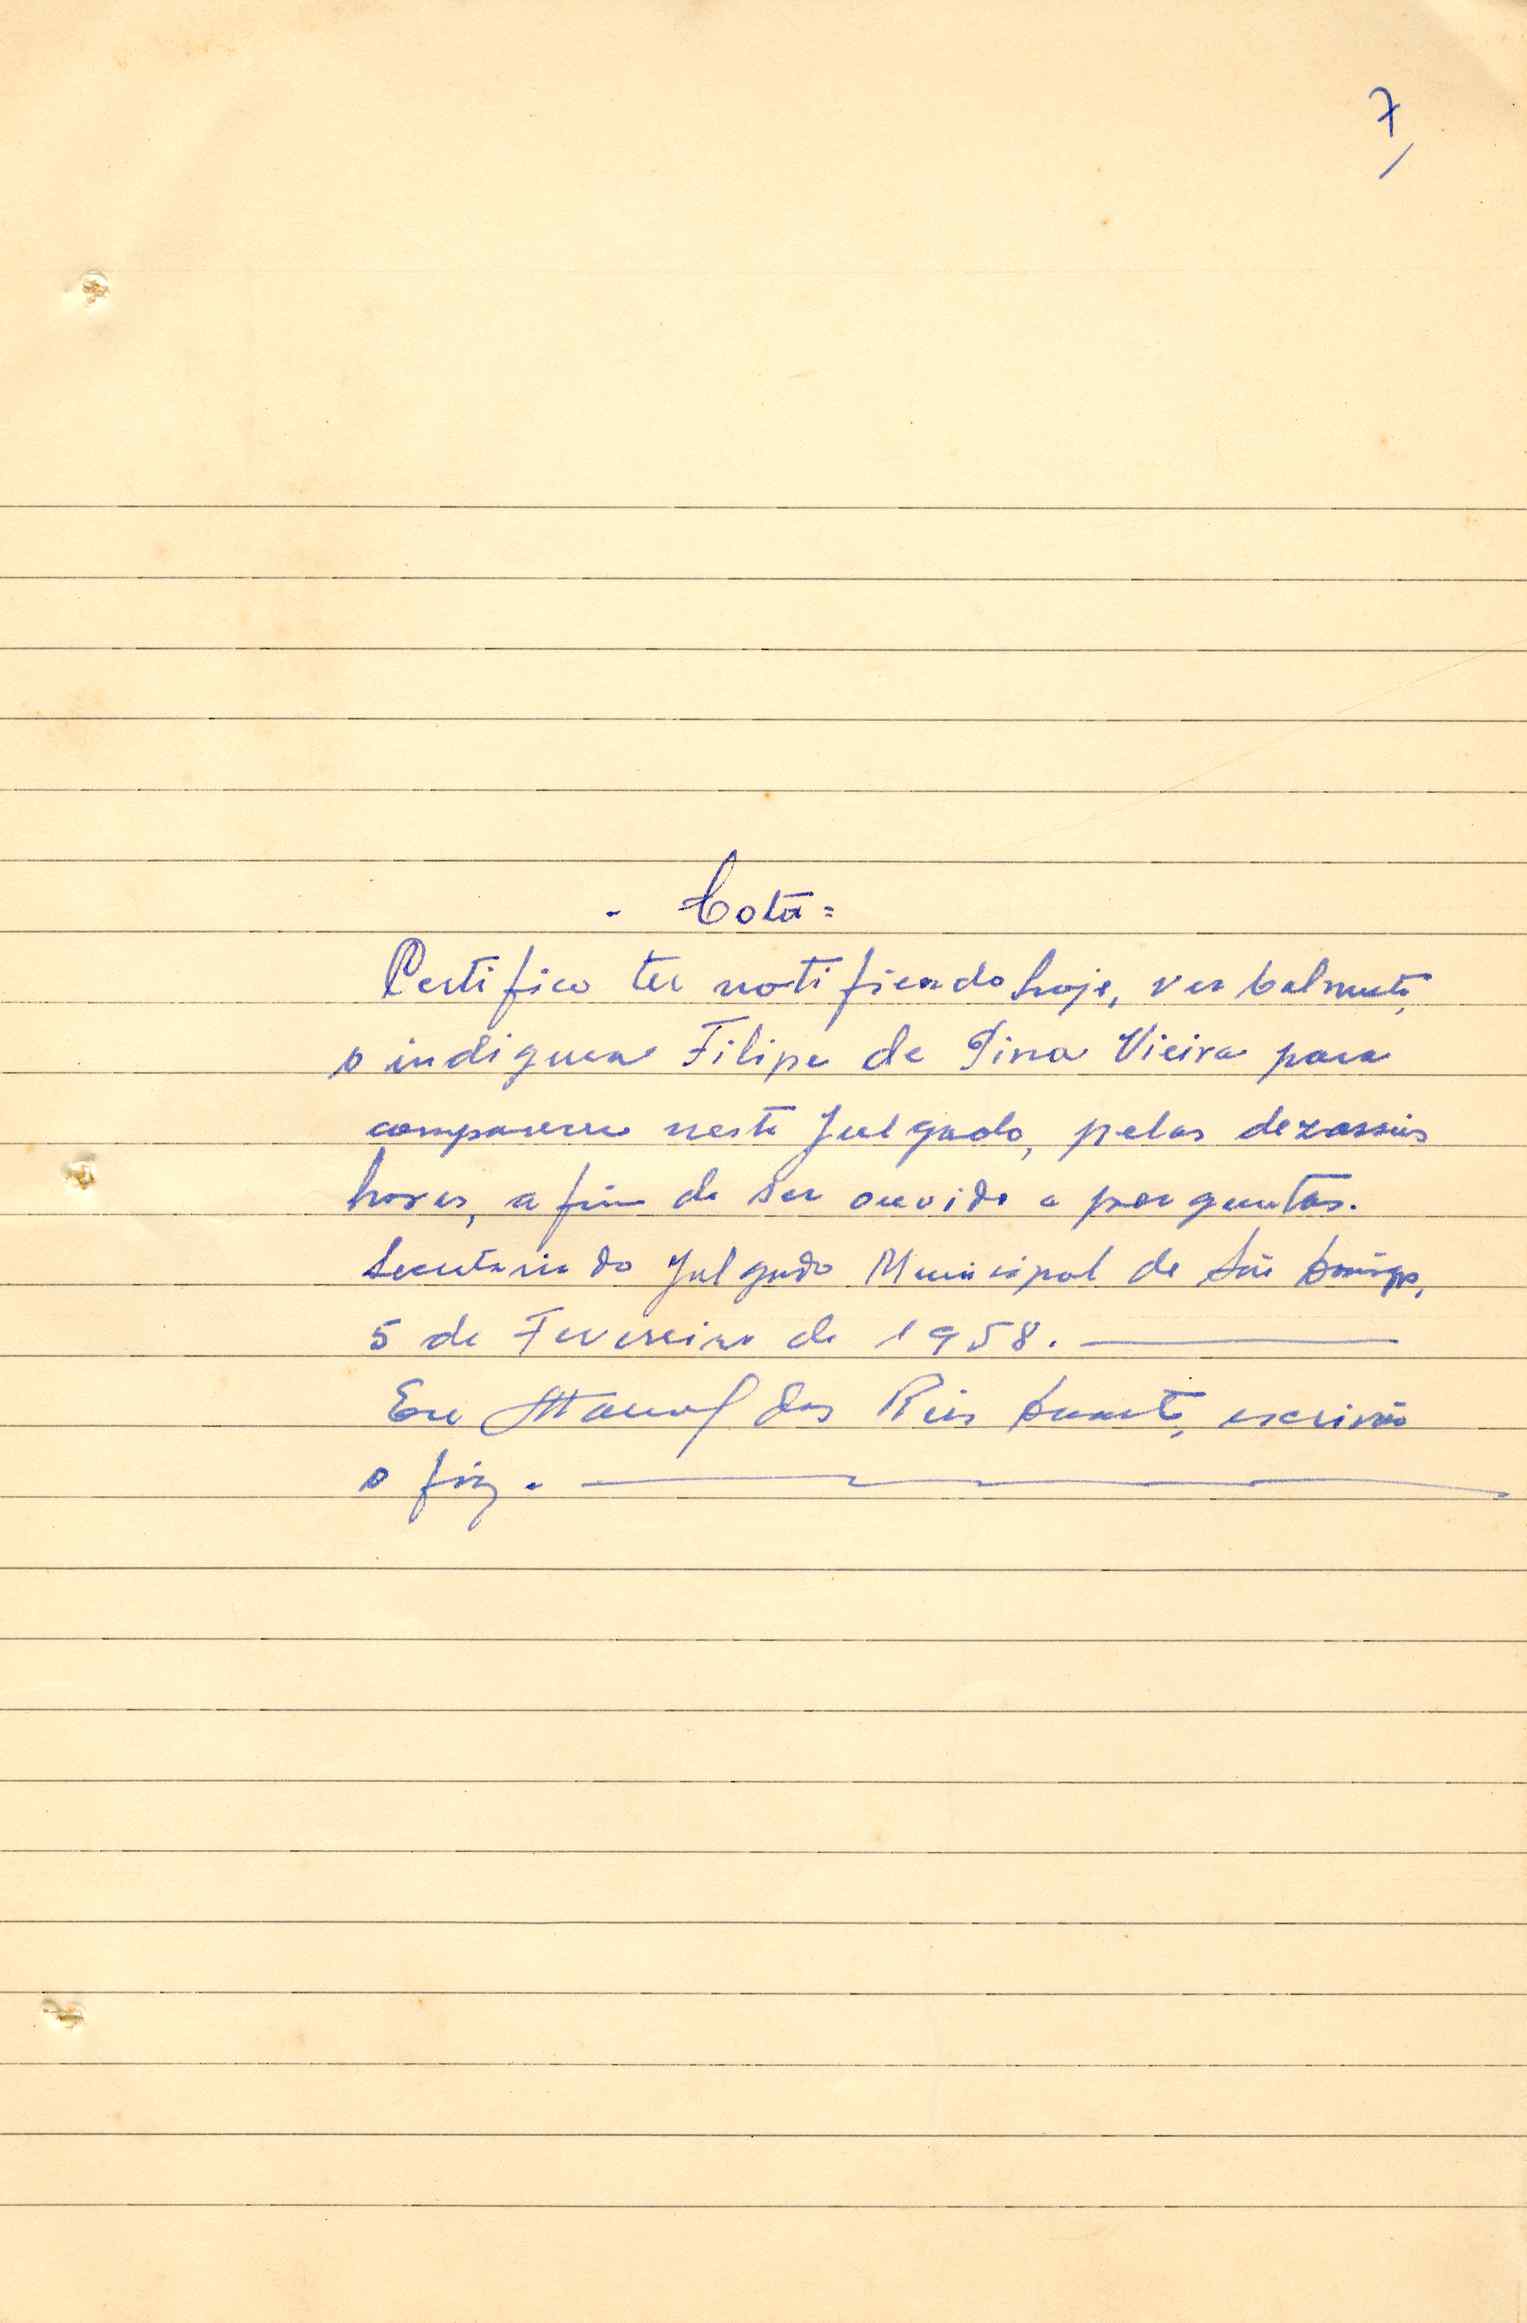 7
- Cota =
Certifico ter notificado hoje, verbalmente,
o indigena Filipe de Pina Vieira para
comparecer neste Julgado, pelas dezasseis
horas, a fim de ser ouvido a perguntas.
Secretaria do Julgado Municipal de São Domingos,
5 de Fevereiro de 1958.
Eu Manuel dos Reis Duarte, escrivão
o fiz.